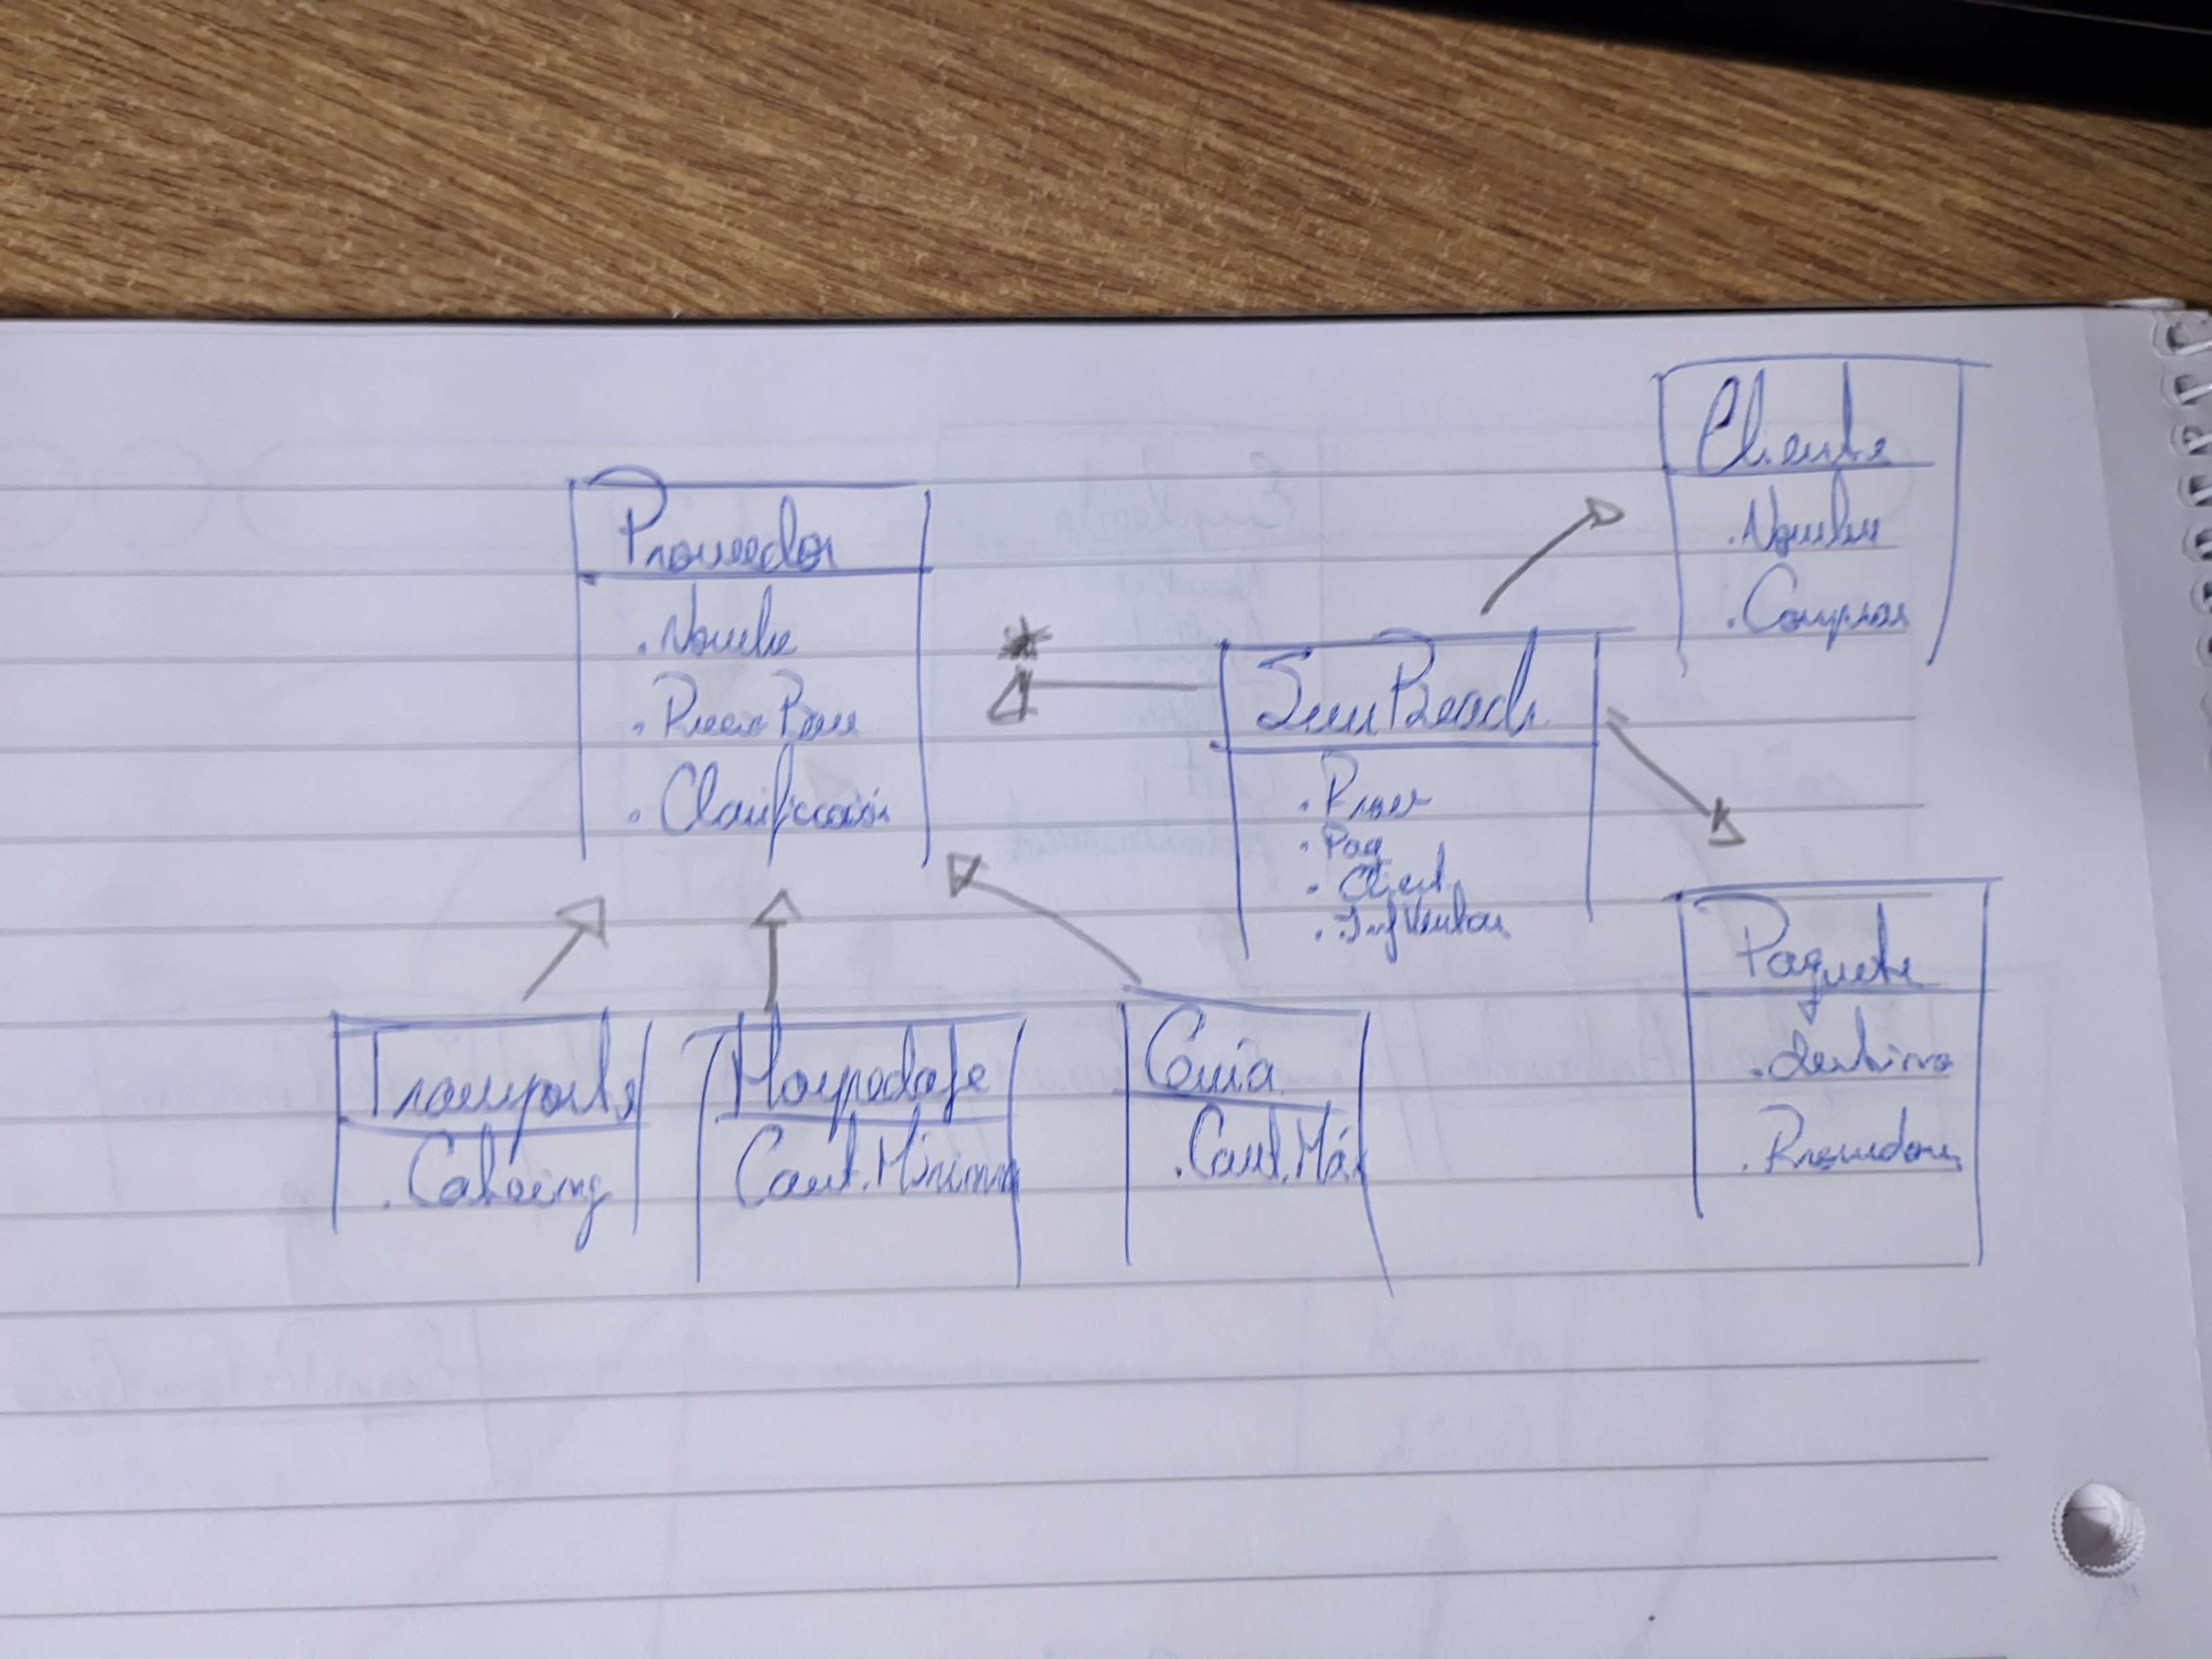 Proveedor
. Nombe
. Precio Base
. Clasificación
*
Sun Beach
. Prov
. Paq
. Client
. Inf Ventas
Cliente
. Nombre
. Compras
Paquete
. destino
. Proveedores
Transporte
Hospedaje
Cant. Minima
Guia
. Cant. Máx